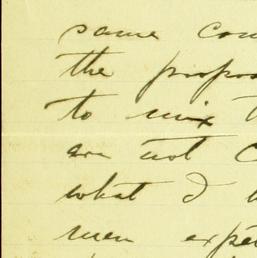 same com
the propos
to mix t
are not c
what I h
men expe